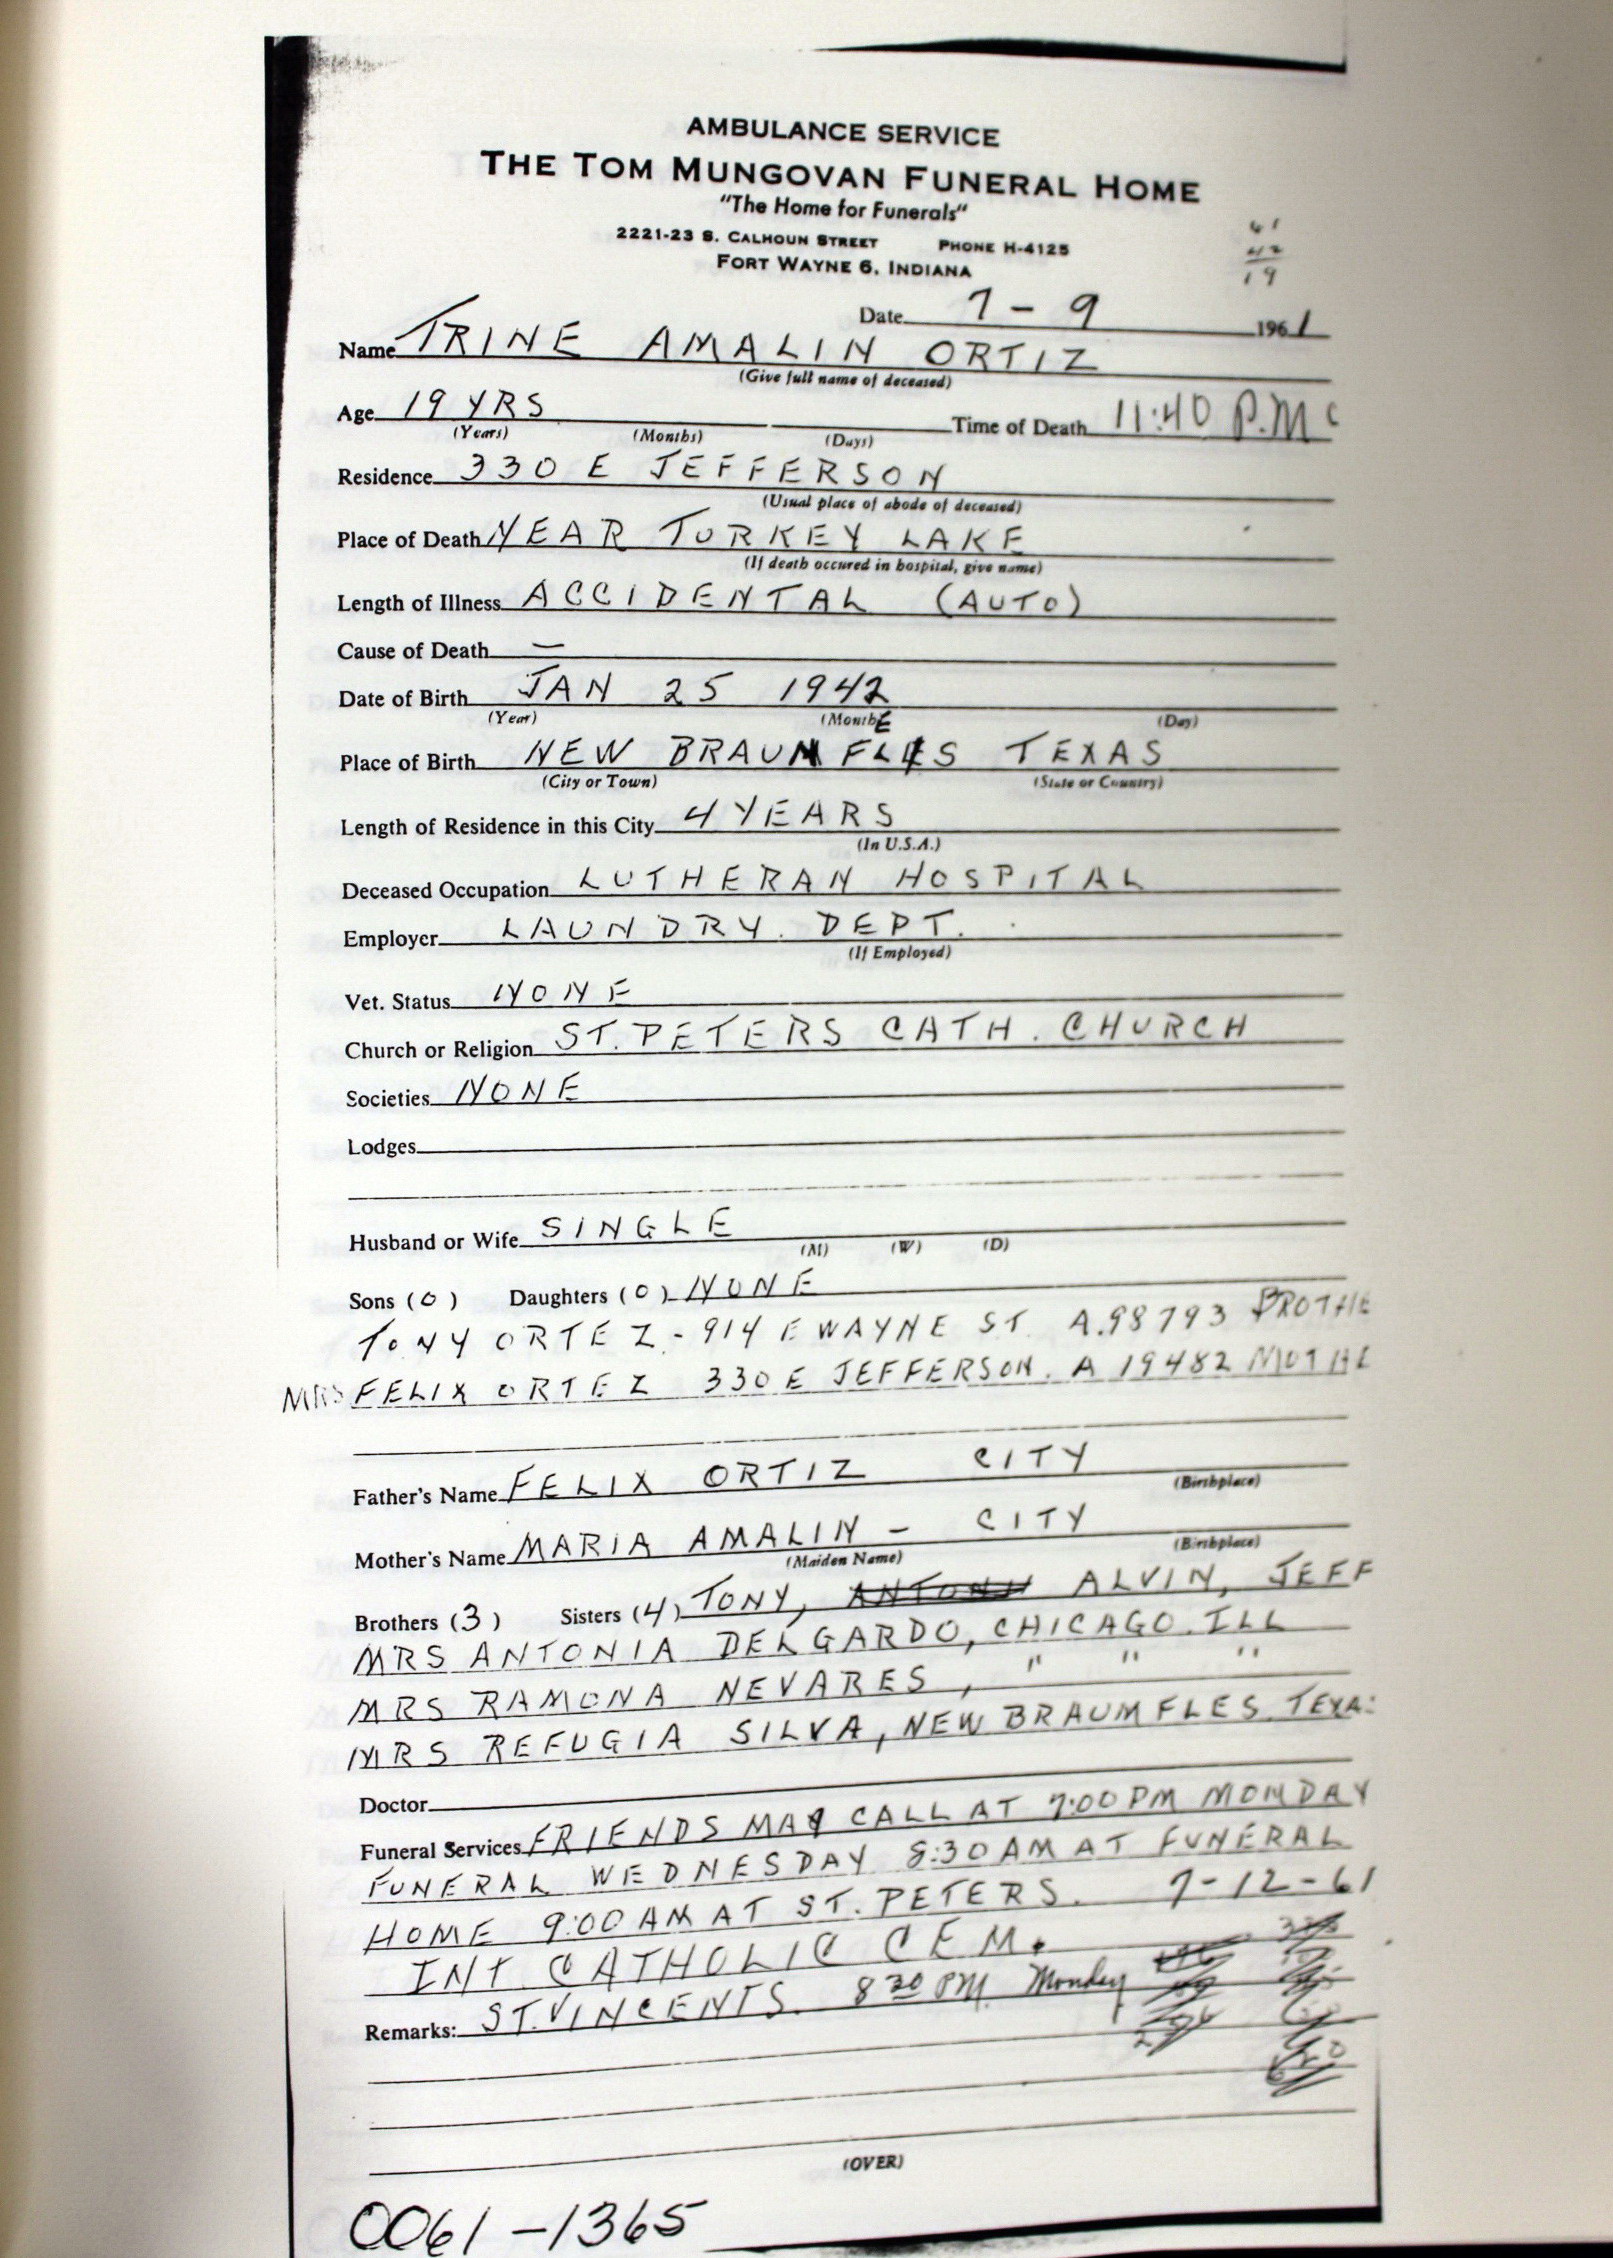 AMBULANCE SERVICE
THE TOM MUNGOVAN FUNERAL HOME
"The Home for Funerals"
2221-23 S. CALHOUN STREET PHONE H-4125
FORT WAYNE 6, INDIANA
61
42
19
Date 7-9 1961
Name TRINE AMALIN ORTIZ
(Give full name of deceased)
Age 19 YRS Time of Death 11:40 P.M
(Years) (Months) (Days)
Residence 330 E JEFFERSON
(Usual place of abode of deceased)
Place of Death NEAR TURKEY LAKE
(If death occured in hospital, give name)
Length of Illness ACCIDENTAL (AUTO)
Cause of Death —
Date of Birth JAN 25 1942
(Year) (Month) (Day)
E
Place of Birth NEW BRAUN FLES TEXAS
(City or Town) (State or Country)
Length of Residence in this City 4 YEARS
(In U.S.A.)
Deceased Occupation LUTHERAN HOSPITAL
Employer LAUNDRY. DEPT.
(If Employed)
Vet. Status NONE
Church or Religion ST. PETERS CATH. CHURCH
Societies NONE
Lodges
Husband or Wife SINGLE
(M) (W) (D)
Sons (0) Daughters (0) NONE
TONY ORTEZ - 914 E WAYNE ST A.98793 BROTHE
MRS FELIX ORTEZ 330 E JEFFERSON. A 19482 MOTHE
Father's Name FELIX ORTIZ CITY
(Birthplace)
Mother's Name MARIA AMALIN - CITY
(Maiden Name) (Birthplace)
Brothers (3) Sisters (4) TONY, ALVIN, JEFF
MRS ANTONIA DELGARDO, CHICAGO. ILL
MRS RAMONA NEVARES, " " "
MRS REFUGIA SILVA, NEW BRAUMFLES TEXA
Doctor
Funeral Services FRIENDS MAY CALL AT 7:00 PM MONDAY
FUNERAL WEDNESDAY 8:30 AM AT FUNERAL
HOME 9:00 AM AT ST. PETERS. 7-12-61
INT. CATHOLIC CEM.
Remarks: ST. VINCENTS 8 30 PM. Monday
(OVER)
0061-1365